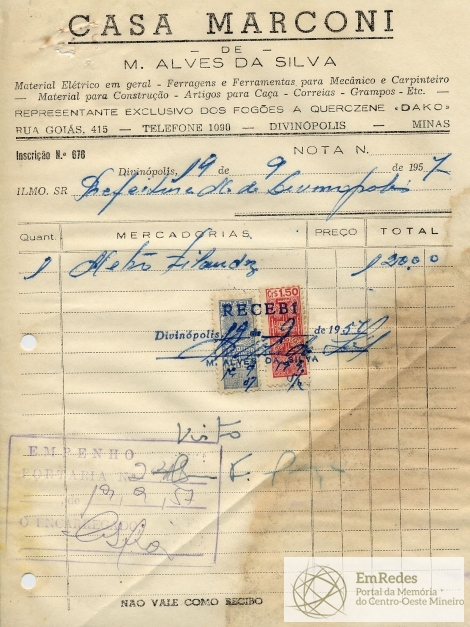 CASA MARCONI
- DE -
M. ALVES DA SILVA
Material Elétrico em geral - Ferragens e Ferramentas para Mecânico e Carpinteiro
— Material para Construção - Artigos para Caça - Correias - Grampos - Etc. —
REPRESENTANTE EXCLUSIVO DOS FOGÕES A QUEROZENE «DAKO»
RUA GOIÁS, 415 — TELEFONE 1090 — DIVINÓPOLIS — MINAS
Inscrição N.º 676
NOTA N.
Divinópolis, 19 de 9 de 1957
ILMO. SR Prefeitura M. de Divinopolis
Quant. MERCADORIAS PREÇO TOTAL
1 Metro 120,00
C$ 1,50
RECEBÍ
Divinópolis 19 - 9 de 195
M. ALVES DA SILVA
Visto
EMPENHO
PORTARIA N.
de 19, 9, 57
O ENCARREGADO
NÃO VALE COMO RECIBO
EmRedes
Portal da Memória
do Centro-Oeste Mineiro